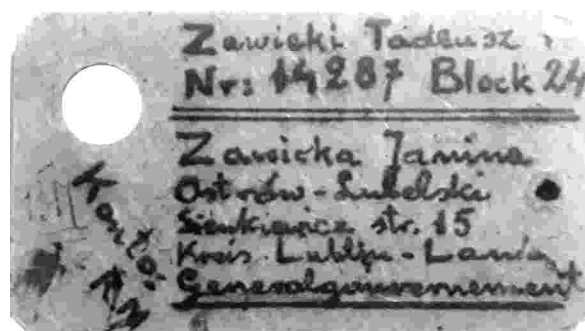 Zawicki Tadeusz
Nr: 14287 Block 24
Zawicka Janina
Ostrów-Lubelski
Sienkiewicz str. 15
Kreis Lublin-Land
Generalgouvernement